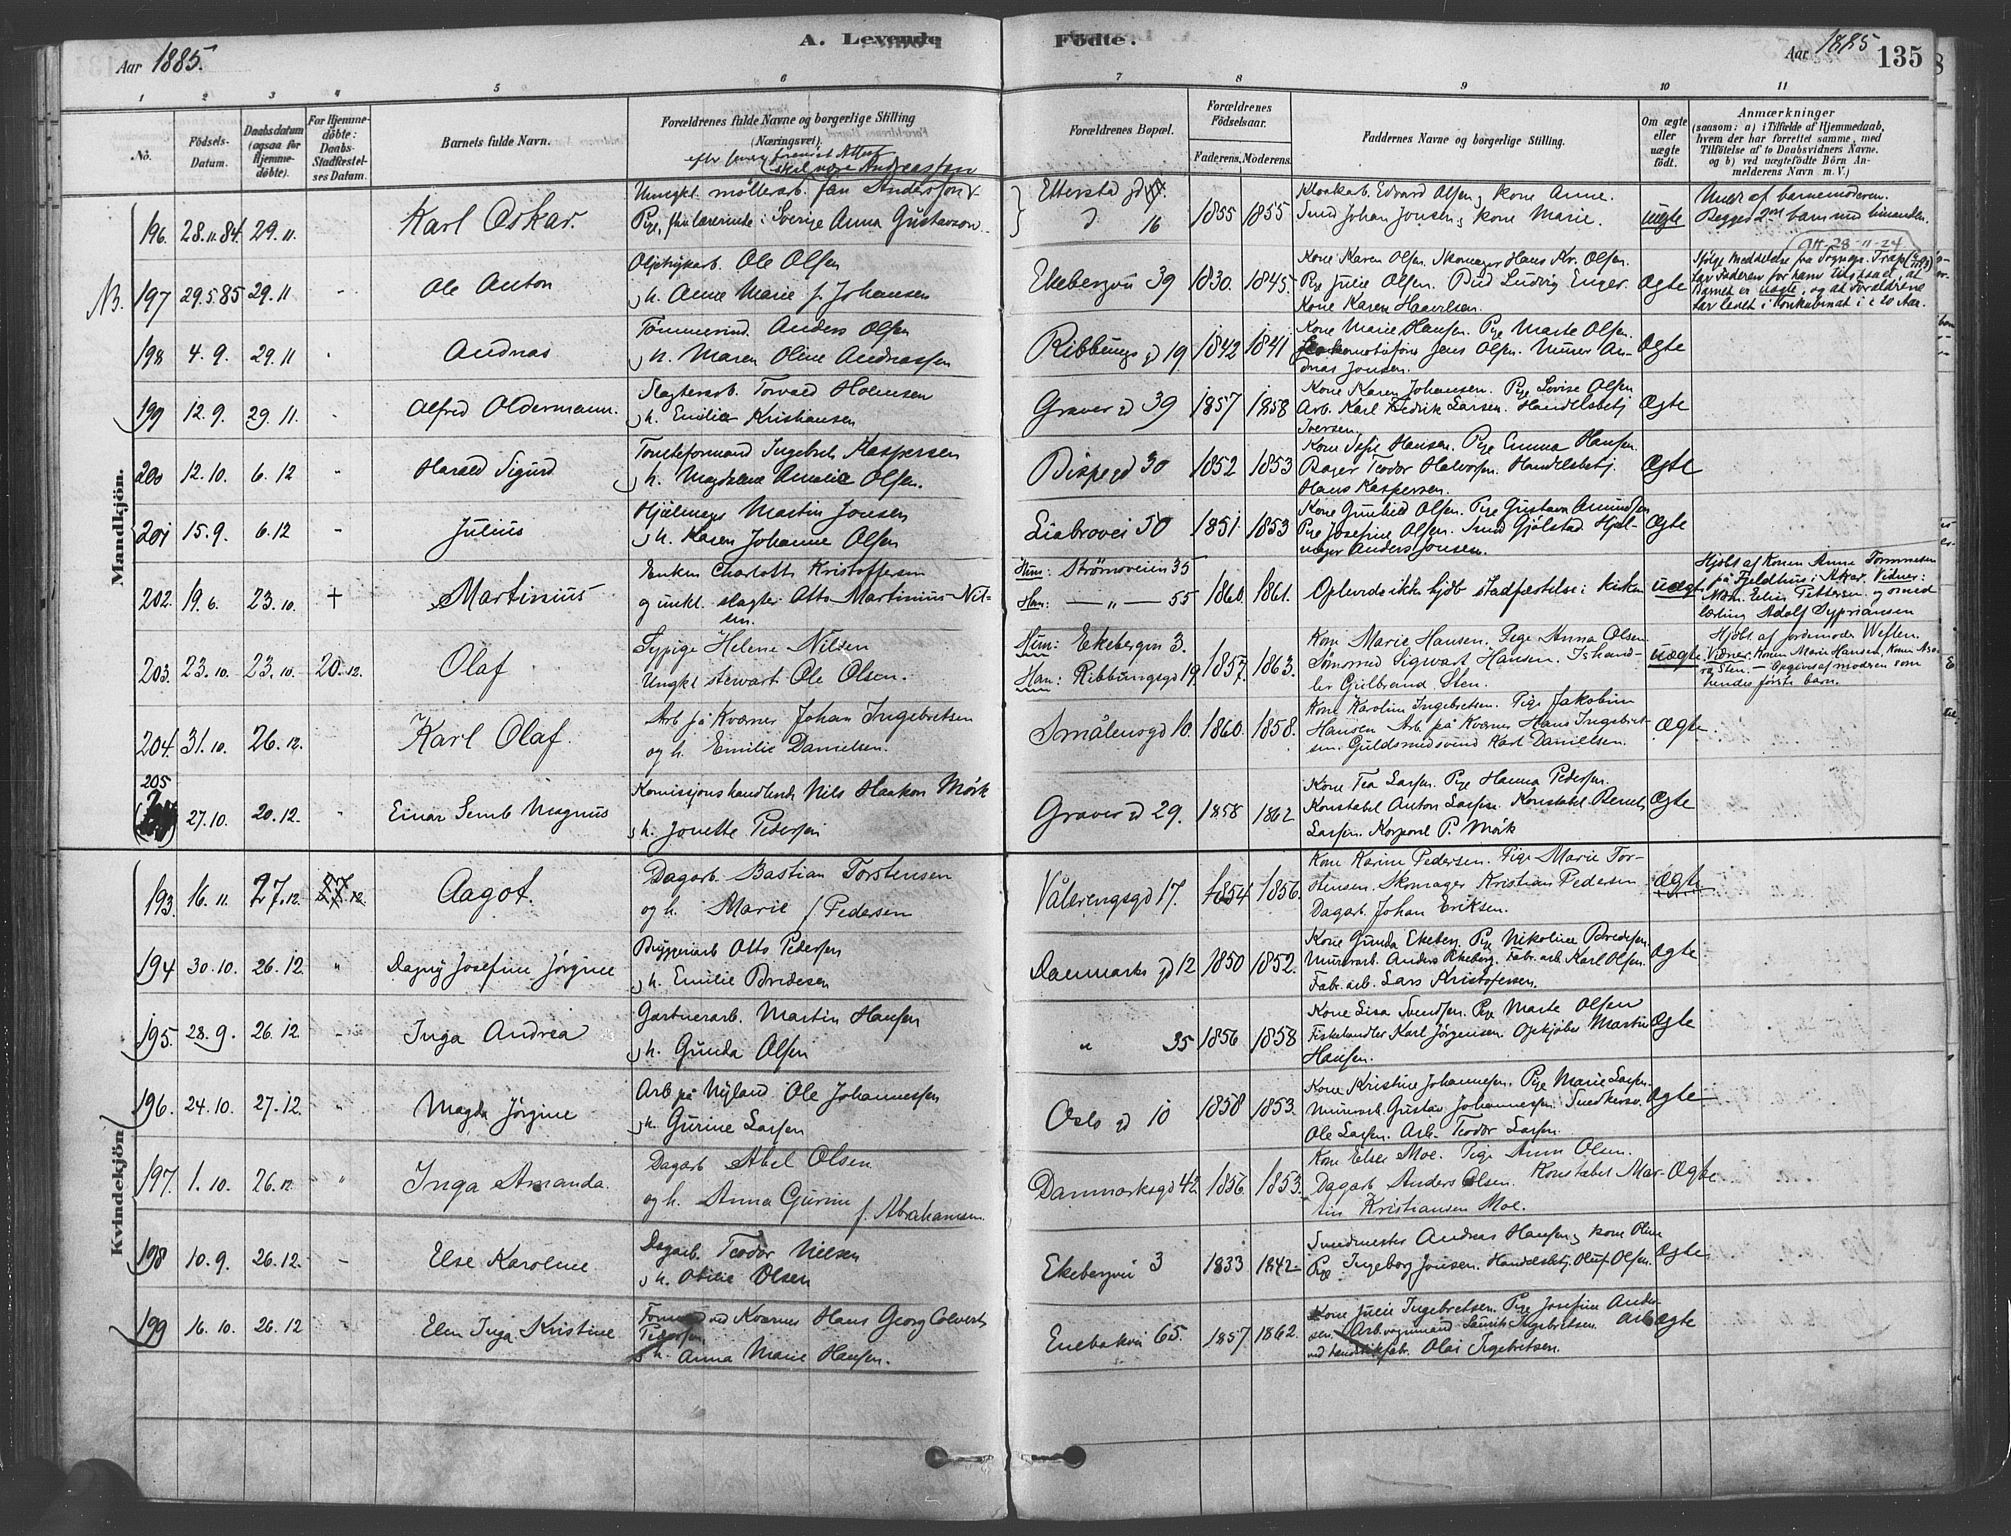 A. Levende Födte.
Aar 1885.
Aar 1885
135
1 2 3 4 5 6 7 8 9 10 11
No.
Födsels-Datum.
Daabsdatum (ogsaa for Hjemme-döbte).
For Hjemme-döbte: Daabs-Stadfæstel-ses Datum.
Barnets fulde Navn.
Forældrenes fulde Navne og borgerlige Stilling (Næringsvei).
Forældrenes Bopæl.
Forældrenes Födselsaar.
Faderens. Moderens.
Faddernes Navne og borgerlige Stilling.
Om ægte eller uægte födt.
Anmærkninger
(saasom: a) i Tilfælde af Hjemmedaab, hvem der har forrettet samme, med Tilföielse af to Daabsvidners Navne. og b) ved uægtefödte Börn Anmelderens Navn m. V.)
skal være Andreassen
Mandkjön.
196. 28.11.84. 29.11. Karl Oskar. Ungkt. möllerarb. Jan Andersson &
Pige, Anna Gustavson. Ettersta gd 16 1855 1855 Kloakarb. Edvard Olsen & kone Anne.
Smed Johan Jonsen & kone Marie. uægte
Begges 2den barn med hinanden.
Att. 28-11-24
NB. 197 29.5.85 29.11 Ole Anton Ole Olsen
& h. Anne Marie f. Johansen Ekebergvei 39 1830. 1845. Kone Karen Olsen. Skomager Hans Kr. Olsen.
Pige Julie Olsen. Ludvig Enger.
Kone Karen Haavelsen. Ægte
Barnet er uægte, og at Forældrene
har levet i Konkubinat i c 20 Aar.
198 4.9. 29.11 Andreas Tömmermd. Anders Olsen
& h. Maren Oline Andreassen Ribbungs gd 19. 1842 1841 Kone Marie Hansen. Pige Marte Olsen.
Jens Olsen. Murer An-
dreas Jonsen. Ægte
199 12.9. 29.11. Alfred Oldermann. Slagterarb. Torvald Holmsen
& h. Emilie Kristiansen Graver gd 39 1857 1858 Kone Karen Johansen. Pige Lovise Olsen
Arb. Karl Fredrik Larsen. Handelsbetj
Iversen. Ægte
200 12.10. 6.12 " Harald Sigurd Tomteformand Ingebret Kaspersen
& h. Magdalene Amalie Olsen. Bispegd 30 1852 1853 Hansen. Pige Emma Hansen
Bager Teodor Halvorsen. Handelsbetj.
Hans Kaspersen. Ægte
201 15.9. 6.12 - Julius Martin Jonsen
& h. Karen Johanne Olsen Liabrovei 50 1851 1853 Kone Gunhild Olsen. Pige Gustava Amundsen
Pige Josefine Olsen. Smed Gjölstad. Hjul-
mager Anders Jonsen. Ægte
202. 19.6. 23.10. + Martinius Enken Charlotte Kristoffersen
og unkt. slagter Otto Martinius Nil-
sen. Hun: Strömsveien 35
Han: — " — 55 1860. 1861. Oplevede ikke hjdb. stadfæstelse i kirken uægte Hjdbt af Konen Anne Tommesen
på Fjeldhus i Aker. Vidner:
Adolf Sypriansen
203. 23.10. 23.10. 20.12. Olaf Sypige Helene Nilsen
Ungkt stewart Ole Olsen. Hun: Ekebergvn 3.
Han: Ribbungsgd 19. 1857. 1863. Kone Marie Hansen. Pige Anna Olsen
Sömand Sigwart Hansen. Ishand-
ler Gulbrand Sten. uægte Hjdbt af jordemoder Weflen.
Vidner: Konen Marie Hansen, Konen
Sten. – Opgives af moderen som
hendes förste barn.
204. 31.10. 26.12. Karl Olaf. Arb på Kværner Johan Ingebretsen
og h. Emilie Danielsen. Smålensgd 10. 1860. 1858. Kone Karoline Ingebretsen. Pige Jakobine
Hansen Arb. på Kværner Hans Ingebret-
sen. Guldsmedsvend Karl Daniellsen. Ægte.
205 27.10. 20.12. " Einar Semb Magnus Komissionshandlende Nils Haakon Mörk
& h. Jonette Pedersen Graver gd 29. 1858 1862 Kone Tea Larsen. Pige Hanna Pedersen.
Konstabel Anton Larsen. Konstabel Bernt
Larsen. Korporal P. Mörk Ægte
Kvindekjön
193. 16.11. 27.12. Aagot. Dagarb. Bastian Torstensen
og h. Marie f. Pedersen Vålerengsgd 17. 1854 1856. Kone Karine Pedersen. Pige Marie Tor-
stensen. Skomager Kristian Pedersen
Dagarb. Johan Eriksen. Ægte
194 30.10. 26.12 " Dagny Josefine Jörgine Bryggeriarb Otto Pedersen
& h. Emilie Bredesen Danmarks gd 12 1850 1852. Kone Gunda Ekeberg. Pige Nikoline Bredesen.
Murerarb. Anders Ekeberg. Fabr. arb. Karl Olsen.
Fabr. arb. Lars Kristofersen. Ægte
195. 28.9. 26.12 - Inga Andrea Gartnerarb. Martin Hansen
& h. Gunda Olsen " 35 1856 1858 Kone Lisa Svendsen. Pige Marte Olsen
Fiskehandler Karl Jörgensen. Opkjöber Martin
Hansen. Ægte
196. 24.10. 27.12. " Magda Jörgine Arb på Nyland Ole Johannessen
& h. Gurine Larsen Oslo gd 10 1858 1853. Kone Kristine Johannesen. Pige Marie Larsen.
Murerarb. Gustav Johannessen. Snedkersv.
Ole Larsen. Arb. Teodor Larsen. Ægte
197. 1.10. 26.12 " Inga Amanda. Dagarb Abel Olsen
og h. Anna Gurine f. Abrahamsen. Danmarksgd 42. 1856. 1853. Kone Else Moe. Pige Anna Olsen.
Dagarb Anders Olsen. Konstabel Mar-
tin Kristiansen Moe. Ægte
198 10.9. 26.12. - Else Karoline Dagarb. Teodor Nielsen
& h. Otilie Olsen Ekebergvei 3 1833 1842 Smedmester Andreas Hansen & kone Oline
Pige Ingeborg Jonsen. Handelsbetj. Oluf Olsen. Ægte
199 16.10. 26.12 Elen Inga Kristine Formand ved Kværner Hans Georg
Pedersen
& h. Anna Marie Hansen. Enebakvei 65. 1857 1862. Kone Julie Ingebretsen. Pige Josefine Ander-
sen. Laurits Ingebretsen. Arb
Olai Ingebretsen. Ægte